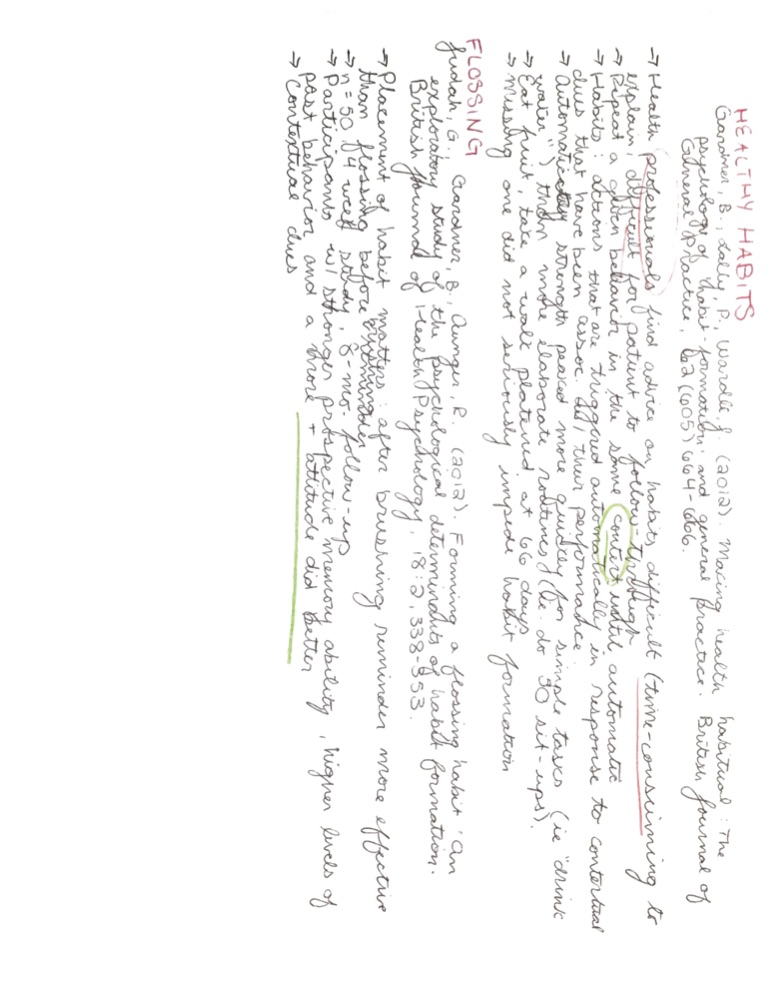 HEALTHY HABITS
Gardner, B., Lally, P., Wardle, J. (2012). Making health habitual: The
psychology of 'habit-formation' and general practice. British Journal of
General Practice, 62(605) 664-666.
→ Health professionals find advice on habits difficult (time-consuming to
explain, difficult for patient to follow through
→ Repeat a given behavior in the same context until automatic
→ Habits: actions that are triggered automatically in response to contextual
cues that have been assoc. w/ their performance.
→ Automaticity strength peaked more quickly for simple tasks (ie "drink
water") than more elaborate routines (ie. do 50 sit-ups).
→ Eat fruit, take a walk plateued at 66 days
→ Missing one did not seriously impede habit formation
FLOSSING
Judah, G., Gardner, B., Aunger, R. (2012). Forming a flossing habit: an
exploratory study of the psychological determinants of habit formation.
British Journal of Health Psychology, 18:2, 338-353.
→ Placement of habit matters: after brushing reminder more effective
than flossing before
→ n = 50, 4 week study, 8-mo. follow-up
→ Participants w/ stronger prospective memory ability, higher levels of
past behavior, and a more + attitude did better
→ Contextual cues